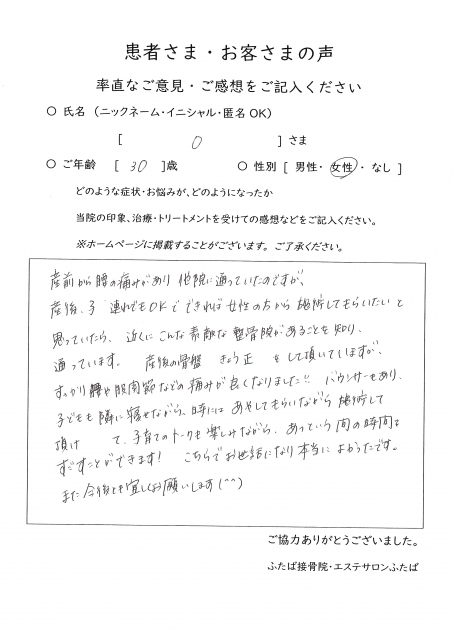 患者さま・お客さまの声
率直なご意見・ご感想をご記入ください
○ 氏名 (ニックネーム・イニシャル・匿名OK)
[ O ] さま
○ ご年齢 [ 30 ]歳 ○ 性別 [ 男性・ 女性・ なし ]
どのような症状・お悩みが、どのようになったか
当院の印象、治療・トリートメントを受けての感想などをご記入ください。
※ホームページに掲載することがございます。ご了承ください。
産前から腰の痛みがあり 他院に通っていたのですが、
産後、子 連れでもOKで できれば女性の方から 施術してもらいたいと
思っていたら、近くに こんな素敵な 整骨院があることを知り、
通っています。 産後の骨盤 きょう正 をして頂いていますが、
すっかり腰や股関節などの痛みが良くなりました!! バウンサーもあり、
子どもも隣に寝せながら、時には あやしてもらいながら 施術して
頂け て、子育てのトークも楽しみながら、あっという間の時間を
すごすことができます! こちらでお世話になり本当に よかったです。
また今後とも宜しくお願いします(^^)
ご協力ありがとうございました。
ふたば接骨院・エステサロンふたば